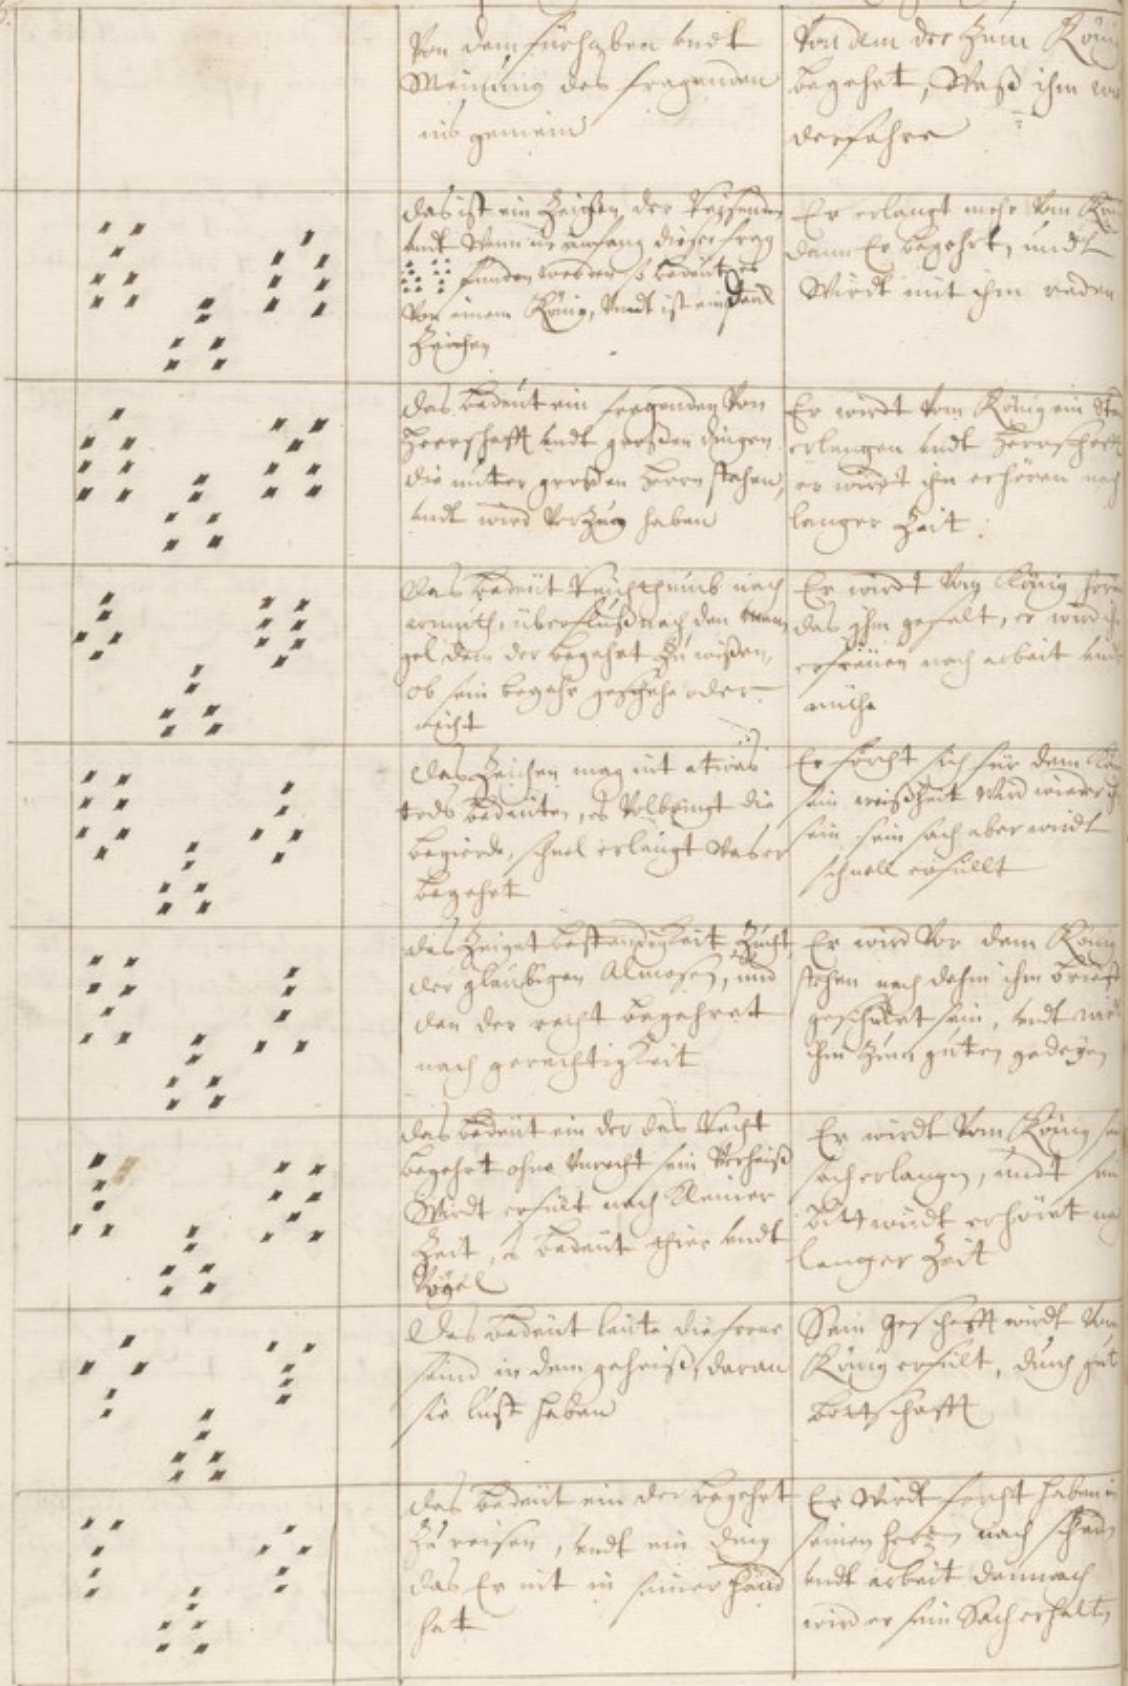 Von dem fürhaben undt
Meinung des fragenden
ins gemein
Von dem der zum König
begehrt, Waß ihm wi
derfahre
das ist ein Zeichen der Reisenden
undt Wenn im anfang dieser frag
funden werden so bedeut es
Von einem König, Undt ist ein
Zeichen
Er erlangt mehr vom
dann Er begehrt, undt
Wirdt mit ihm reden
das bedeut ein fragenden Von
Herrschafft undt grossen dingen
die unter grossen Herrn stehen,
undt wird Verzug haben
Er wirdt vom König ein
erlangen undt Herrschafft
er wirdt ihn erhören nach
langer Zeit.
das bedeut Reichthumb nach
armuth, überfluß nach den man
gel, dem der begehrt Zu wißen,
ob sein begehr geschehe oder
nicht
Er wirdt Vom König
das ihm gefalt, er wird ihn
erfreüen nach arbeit undt
mühe
das Zeichen mag nit etwas
tods bedeuten, es Volbringt die
begierde, schnel erlangt Was er
begehrt
Er förcht sich für dem
sein weißheit Wird wieder
sein sein sach aber wirdt
schnell erfüllt
das Zeiget bestendigkeit, Zucht
der glaubigen Almosen, und
den der recht begehret
nach gerechtigkeit
Er wird Vor dem König
stehen nach dehm ihm brieff
geschickt sein, undt wirdt
ihm Zum guten gedeyen
das bedeut ein der das Recht
begehrt ohne Unrecht sein Verheiß
Wirdt erfült nach kleiner
Zeit, es bedeut thier undt
Vögel
Er wirdt Vom König
sach erlangen, undt sein
Bitt wirdt erhört nach
langer Zeit
Das bedeut leüte die ferne
seind in dem geheiß, daran
sie lust haben
Sein geschefft wirdt Vom
König erfült, durch gut
bottschafft
das bedeut ein der begehrt
Zu reisen, undt ein ding
das Er nit in seiner Hand
hat
Er Wirdt forcht haben in
seinem hertzen nach
undt arbeit dennoch
wird er sein Sach erhalten